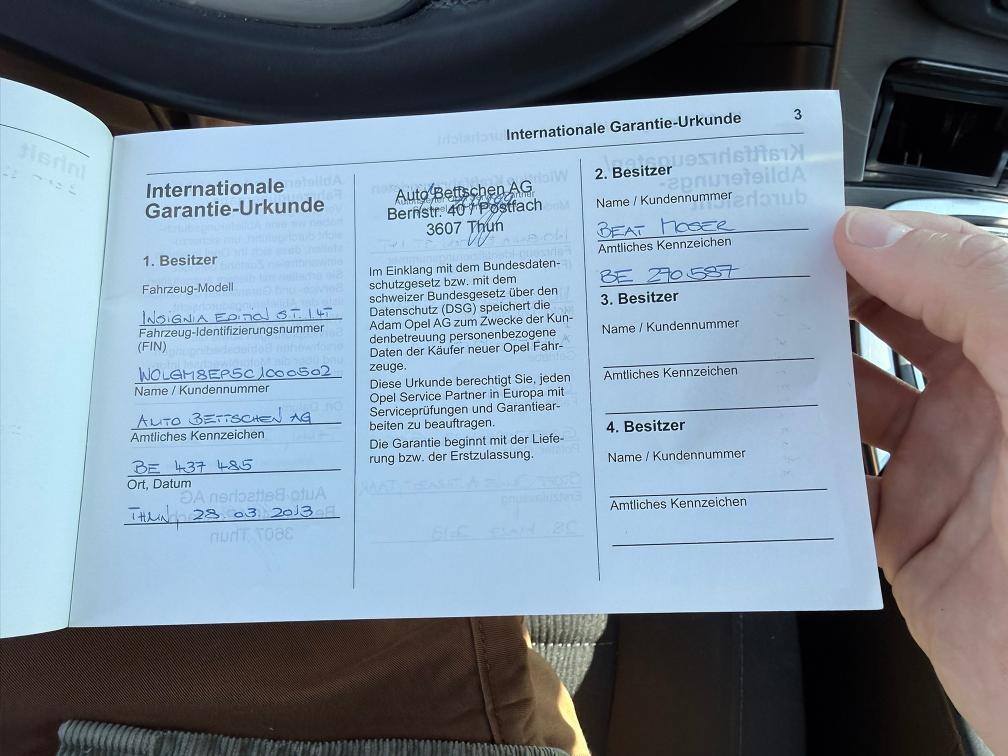 Internationale Garantie-Urkunde
3
Internationale
Garantie-Urkunde
1. Besitzer
Fahrzeug-Modell
INSIGNIA EDITION ST. 1.4T
Fahrzeug-Identifizierungsnummer
(FIN)
WOLGM8EP5C1000502
Name / Kundennummer
AUTO BETTSCHEN AG
Amtliches Kennzeichen
BE 437 485
Ort, Datum
THUN, 28.03.2013
Auto Bettschen AG
Bernstr. 40 / Postfach
3607 Thun
Im Einklang mit dem Bundesdaten-
schutzgesetz bzw. mit dem
schweizer Bundesgesetz über den
Datenschutz (DSG) speichert die
Adam Opel AG zum Zwecke der Kun-
denbetreuung personenbezogene
Daten der Käufer neuer Opel Fahr-
zeuge.
Diese Urkunde berechtigt Sie, jeden
Opel Service Partner in Europa mit
Serviceprüfungen und Garantiear-
beiten zu beauftragen.
Die Garantie beginnt mit der Liefe-
rung bzw. der Erstzulassung.
2. Besitzer
Name / Kundennummer
BEAT MOSER
Amtliches Kennzeichen
BE 270.587
3. Besitzer
Name / Kundennummer
Amtliches Kennzeichen
4. Besitzer
Name / Kundennummer
Amtliches Kennzeichen
Inhalt